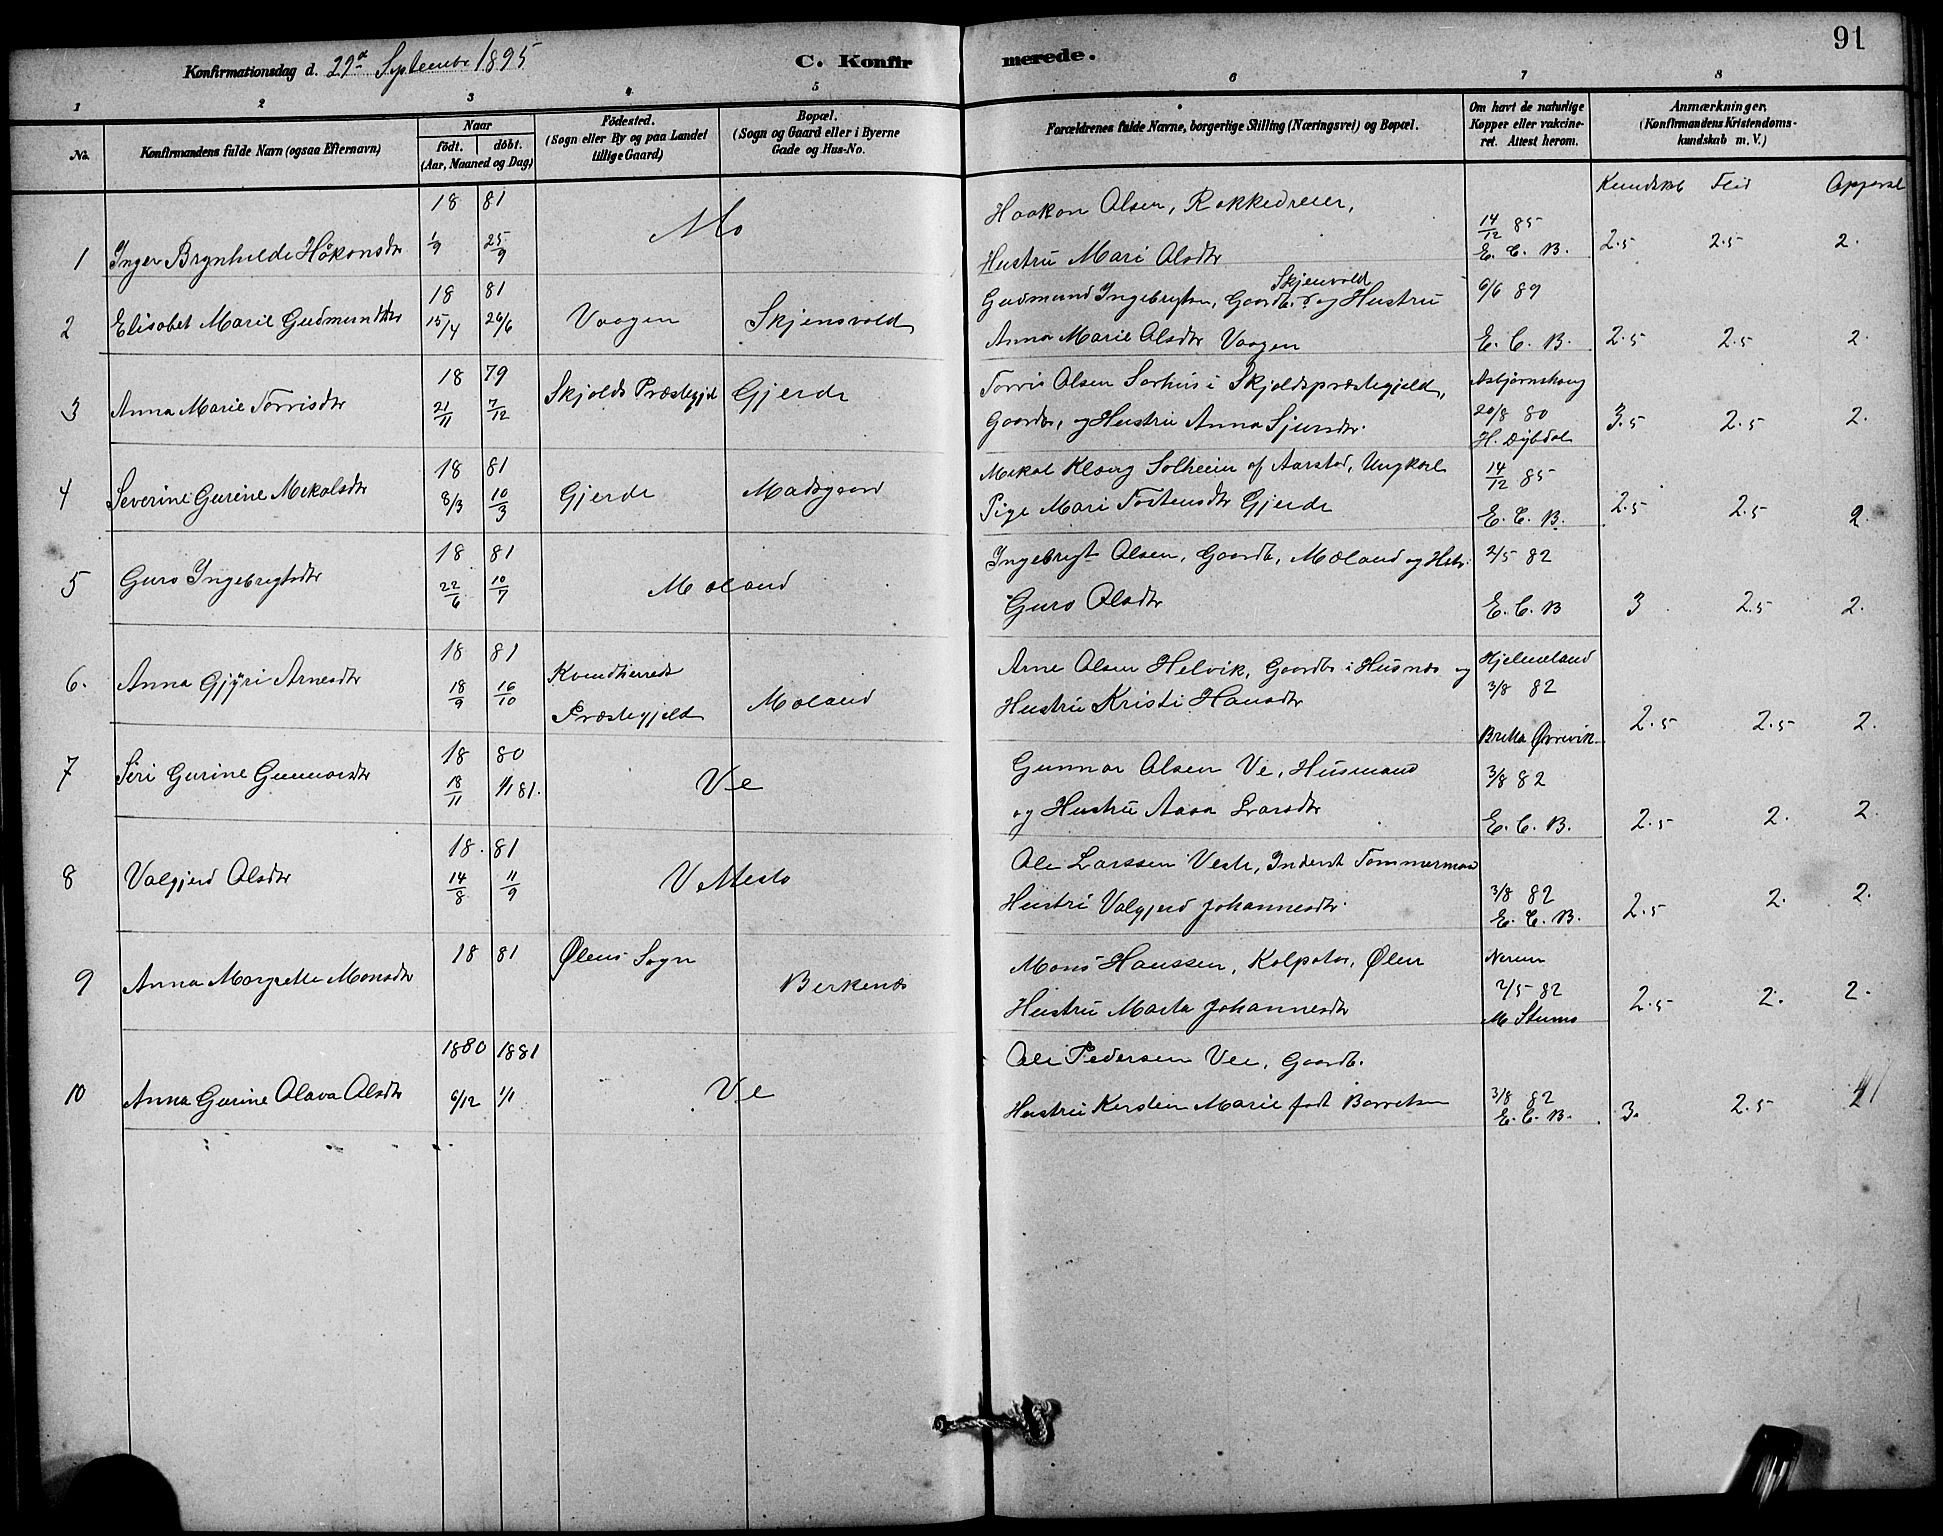 91
Konfirmationsdag d. 29de September 1895
C. Konfirmerede.
1 2 3 4 5 6 7 8
No.
Konfirmandens fulde Navn (ogsaa Efternavn)
Naar
födt. döbt.
(Aar, Maaned og Dag)
Födested.
(Sogn eller By og paa Landet
tillige Gaard)
Bopæl.
(Sogn og Gaard eller i Byerne
Gade og Hus-No.
Forældrenes fulde Navne, borgerlige Stilling (Næringsvei) og Bopæl.
Om havt de naturlige
Kopper eller vakcine-
ret. Attest herom.
Anmærkninger.
(Konfirmandens Kristendoms-
kundskab m. V.)
Kundskab Flid Opførsel
18 81 Mo Haakon Olsen, Rokkedreier, 14/12 85
1 Inger Brynhilde Håkonsdtr 1/9 25/9 Hustru Mari Olsdtr E. C. B. 2.5 2.5 2.
18 81 Skjensvold
Gudmund Ingebrigtsen, Gaardb. og Hustru 9/6 89
2 Elisabet Marie Gudmundsdtr 15/4 26/6 Vaagen Skjensvold Anna Marie Olsdtr Vaagen E. C. B. 2.5 2.5 2.
18 79 Skjolds Præstegjeld Gjerde Torris Olsen Sørhus i Skjoldspræstegjeld, Asbjørnshaug
3 Anna Marie Torrisdtr 21/11 7/12 Gaardbr, og Hustru Anna Sjursdtr. 20/8 80 3.5 2.5 2.
H. Dybdal
18 81 Mikal Kloug Solheim af Aarstad, Ungkarl 14/12 85
4 Severine Gurine Mikalsdtr 8/3 10/3 Gjerde Madsgaard Pige Mari Tostensdtr Gjerde E. C. B. 2.5 2.5 2.
18 81 Ingebrigt Olsen, Gaardb, Mæland og Hstr. 2/5 82
5 Guro Ingebrigtsdtr 22/6 10/7 Mæland Guro Olsdtr E. C. B 3 2.5 2.
18 81 Kvindherreds Arne Olsen Helvik, Gaardbr i Husnæs og Hjelmeland
6. Anna Gjyri Arnesdtr 18/9 16/10 Præstegjeld Mæland Hustru Kristi Hansdtr 3/8 82
Britta Øvrevik 2.5 2.5 2.
18 80 Gunnar Olsen Ve, Husmand 3/8 82
7 Siri Gurine Gunnarsdtr 18/11 1/1 81. Ve og Hustru Aasa Larsdtr E. C. B. 2.5 2. 2.
18. 81 Ole Larssen Vestr, Inderst Tømmermand
8 Valgjerd Olsdtr 14/8 11/9 Hustru Valgjerd Johannesdtr. 3/8 82
E. C. B. 2.5 2. 2.
18 81 Ølens Sogn Mons Hanssen, Kolpotør, Ølen
9 Anna Margrette Monsdtr Berkenæs Hustru Marta Johannesdtr 2/5 82 2.5 2. 2.
1880 1881 Ole Pedersen Vee, Gaardb.
10 Anna Gurine Olava Olsdtr 6/12 1/1 Ve Hustru Kersten Marie født 3/8 82
E. C. B. 3. 2.5